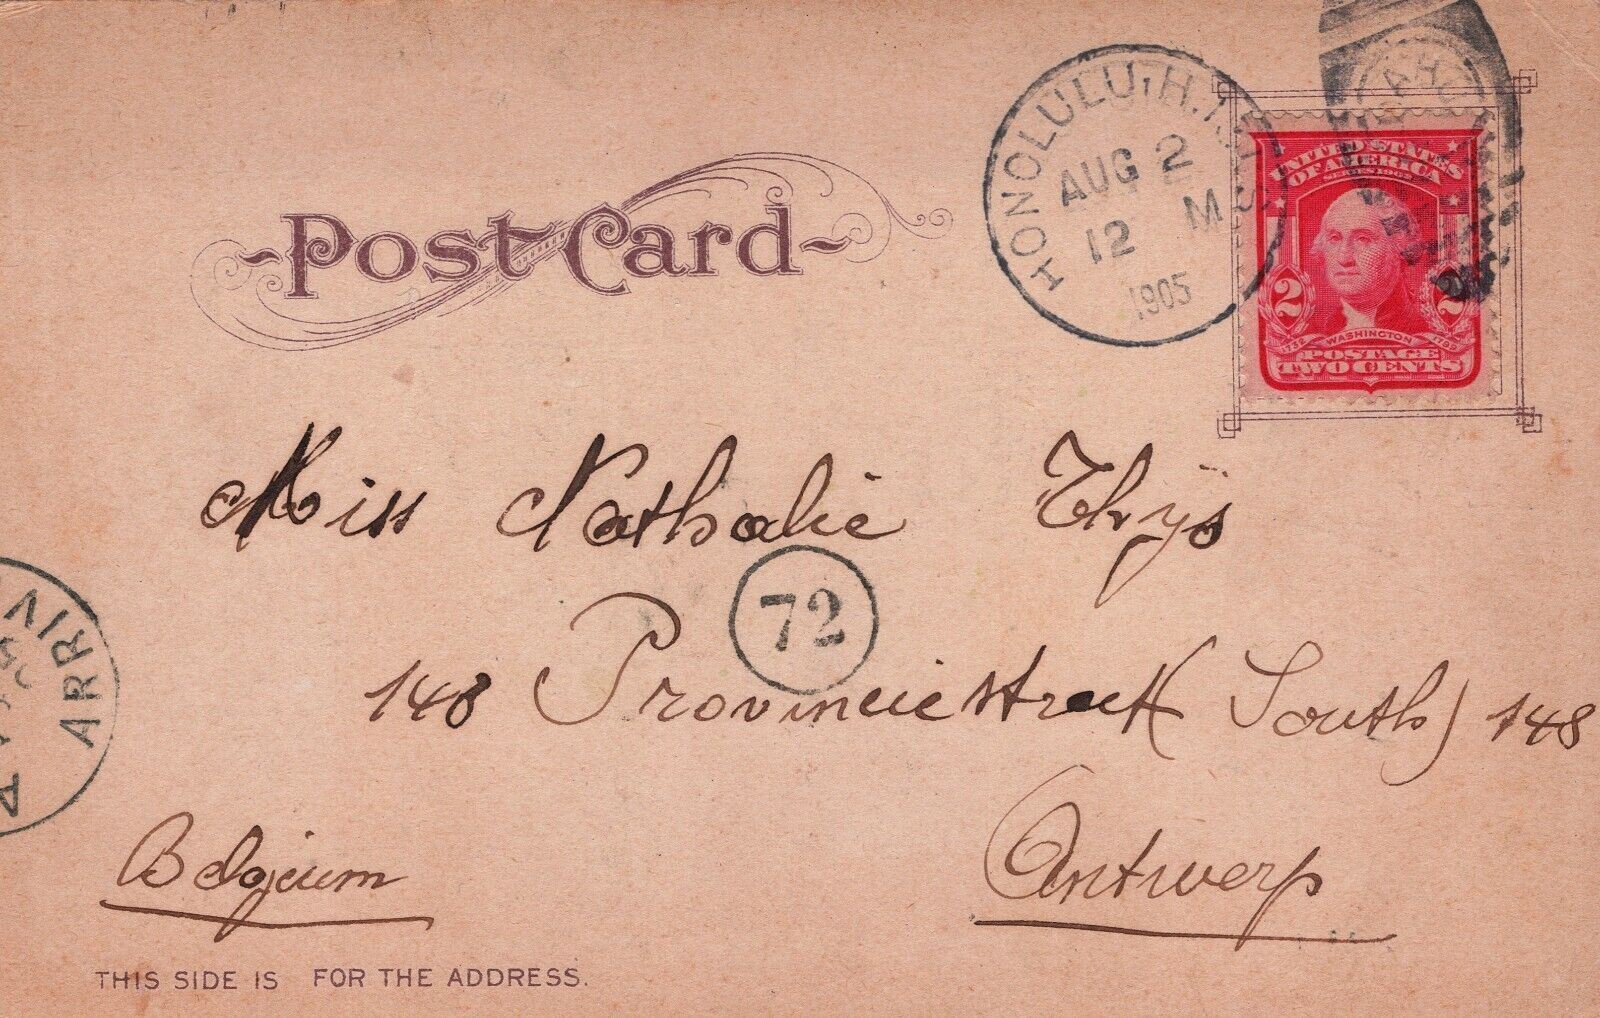 Post Card
HONOLULU, H.T.
AUG 2
12 M
1905
UNITED STATES
OF AMERICA
SERIES 1902
2 2
1732 WASHINGTON 1799
POSTAGE
TWO CENTS
Miss Nathalie Thÿs
72
148 Provinciestreet (South) 148
ARRIV
Belgium Antwerp
THIS SIDE IS FOR THE ADDRESS.